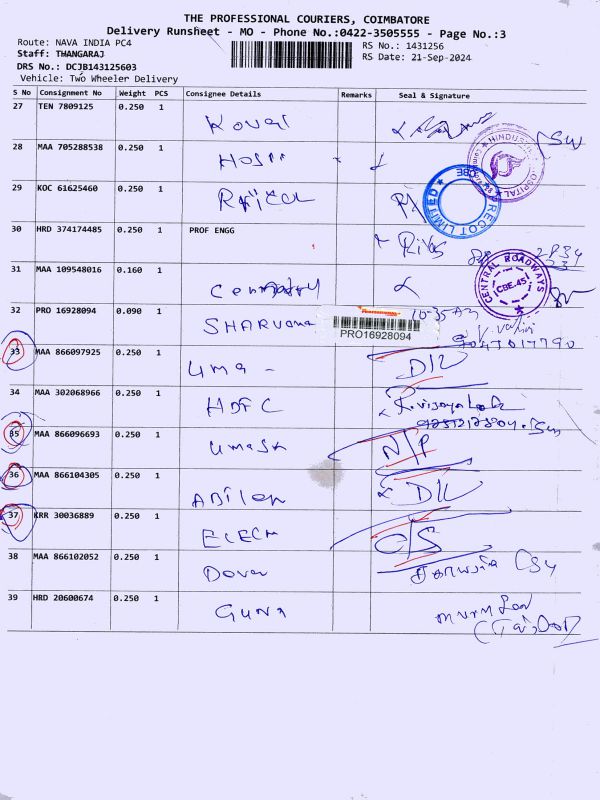 THE PROFESSIONAL COURIERS, COIMBATORE
Delivery Runsheet - MO - Phone No.:0422-3505555 - Page No.:3
Route: NAVA INDIA PC4 RS No.: 1431256
Staff: THANGARAJ RS Date: 21-Sep-2024
DRS No.: DCJB143125603
Vehicle: Two Wheeler Delivery
S No Consignment No Weight PCS Consignee Details Remarks Seal & Signature
27 TEN 7809125 0.250 1 Koval
28 MAA 705288538 0.250 1 HOSPI
HINDUSTHAN HOSPITAL
29 KOC 61625460 0.250 1
PRECOT LIMITED CBE
30 HRD 374174485 0.250 1 PROF ENGG
31 MAA 109548016 0.160 1
CENTRAL ROADWAYS CBE-45
32 PRO 16928094 0.090 1 SHARVANA 10-35 AM
PRO16928094
33 MAA 866097925 0.250 1 Uma - D/L
34 MAA 302068966 0.250 1 HDFC
35 MAA 866096693 0.250 1 Umask N/P
36 MAA 866104305 0.250 1 ABilen D/L
37 KRR 30036889 0.250 1 ELECH C/S
38 MAA 866102052 0.250 1 Dover
39 HRD 20600674 0.250 1 GUNA